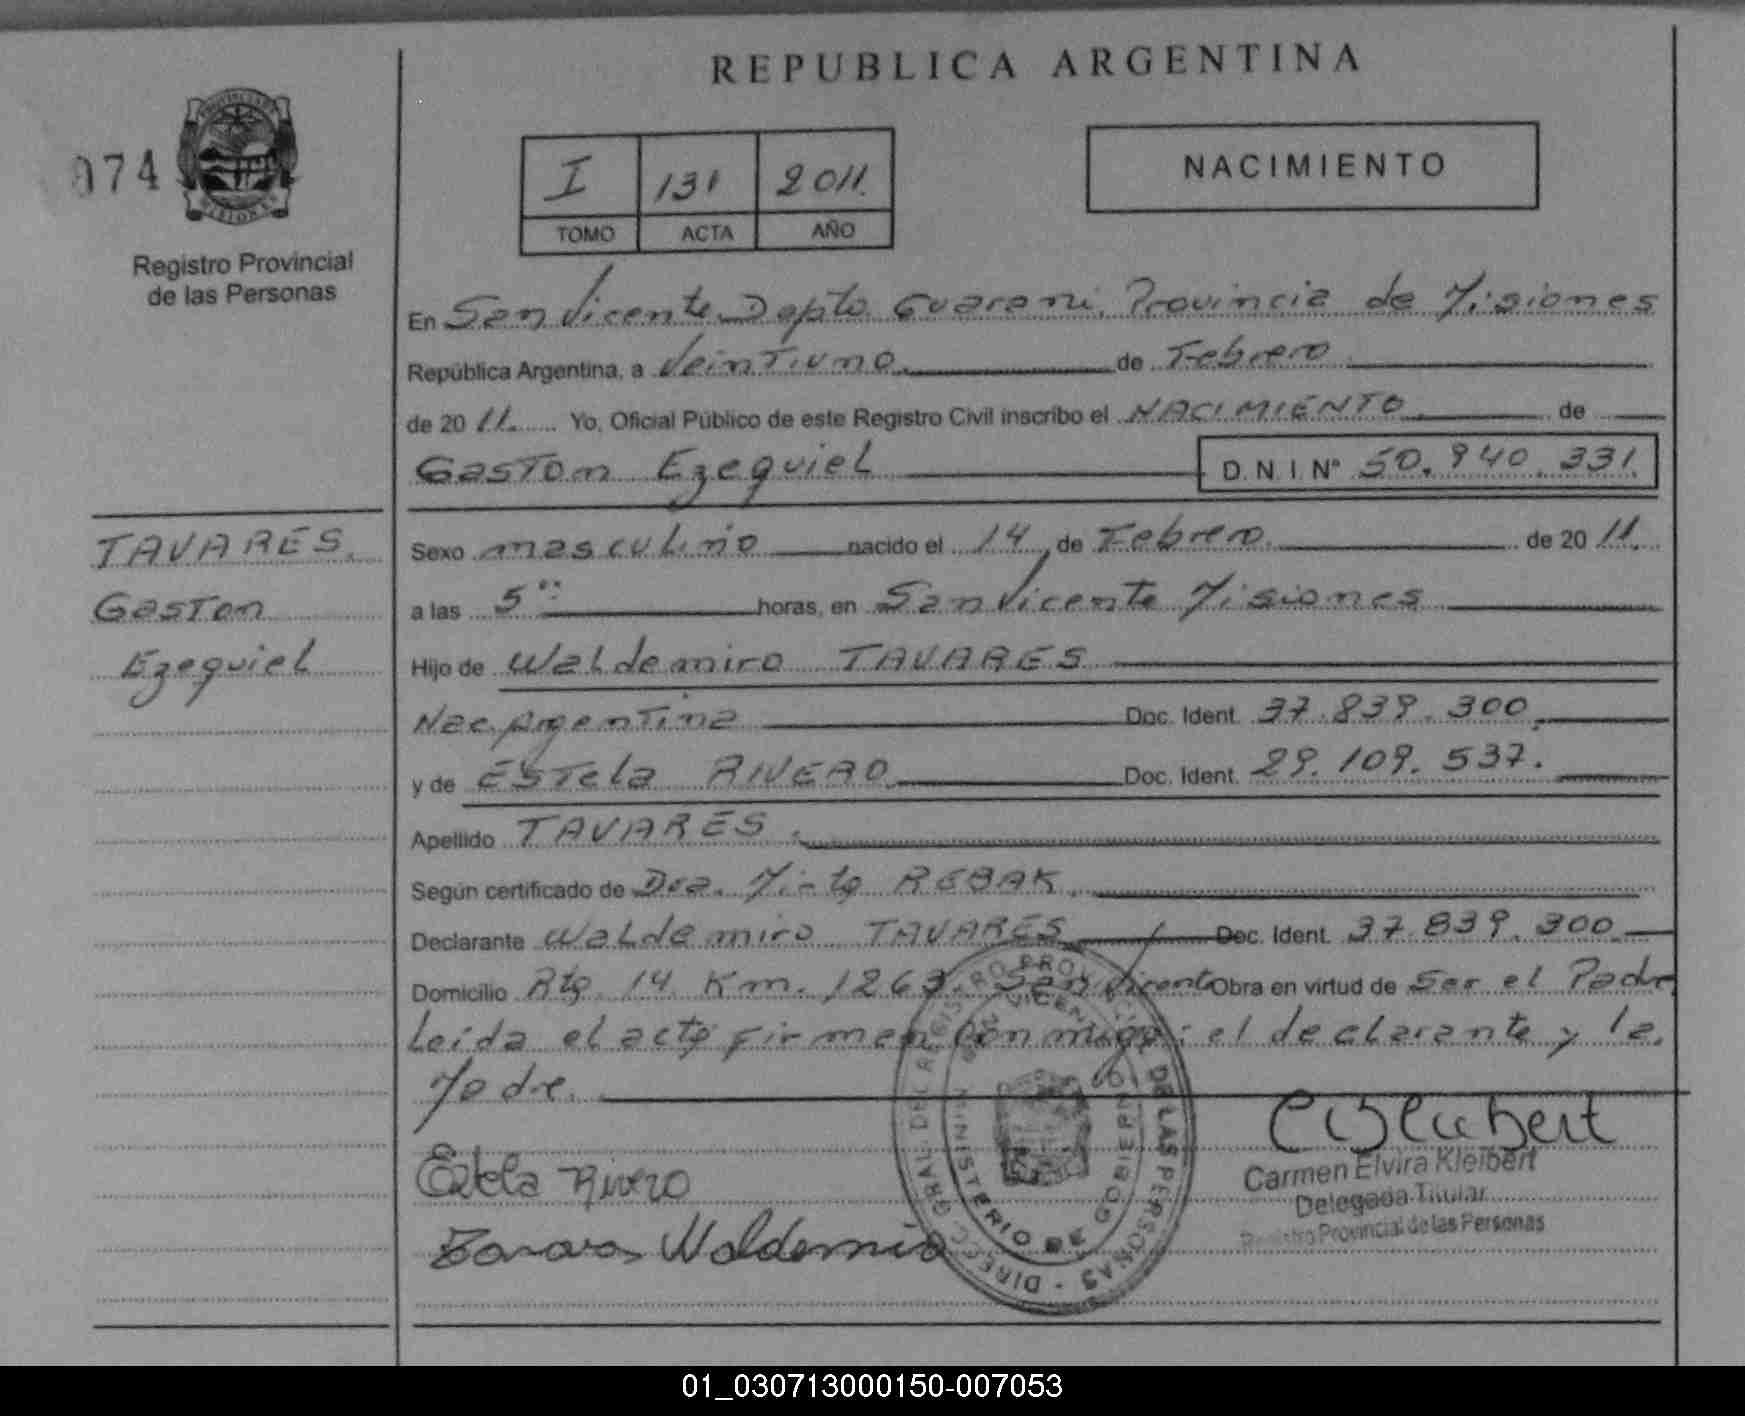 REPUBLICA ARGENTINA
074
PROVINCIA DE MISIONES
Registro Provincial
de las Personas
I 131 2011.
TOMO ACTA AÑO
NACIMIENTO
En San Vicente Dapto Guarani. Provincia de Misiones
República Argentina, a VeinTiuno. de Febrero
de 2011. Yo, Oficial Público de este Registro Civil inscribo el NACIMIENTO de
GasTon Ezequiel D.N.I.N° 50.940.331.
TAVARES.
GasTon
Ezequiel
Sexo masculino nacido el 14 de Febrero. de 2011.
a las 5 horas, en San Vicente Misiones
Hijo de Waldemiro TAVARES
Nac. ArgenTina Doc. Ident. 37.839.300.
y de ESTela RIVERO Doc. Ident. 29.109.537.
Apellido TAVARES.
Según certificado de Dra. REBAK.
Declarante Waldemiro TAVARES Doc. Ident. 37.839.300.
Domicilio Rta. 14 Km. 1263. San Vicente Obra en virtud de Ser el Padre
Leida el acta firman conmigo: el declarante y la.
Madre.
Estela Rivero
Tavares Waldemiro
DIRECC. GRAL. DEL REGISTRO PROVINCIAL DE LAS PERSONAS
MINISTERIO DE GOBIERNO
Carmen Elvira Kleibert
Delegada Titular
Registro Provincial de las Personas
01_030713000150-007053